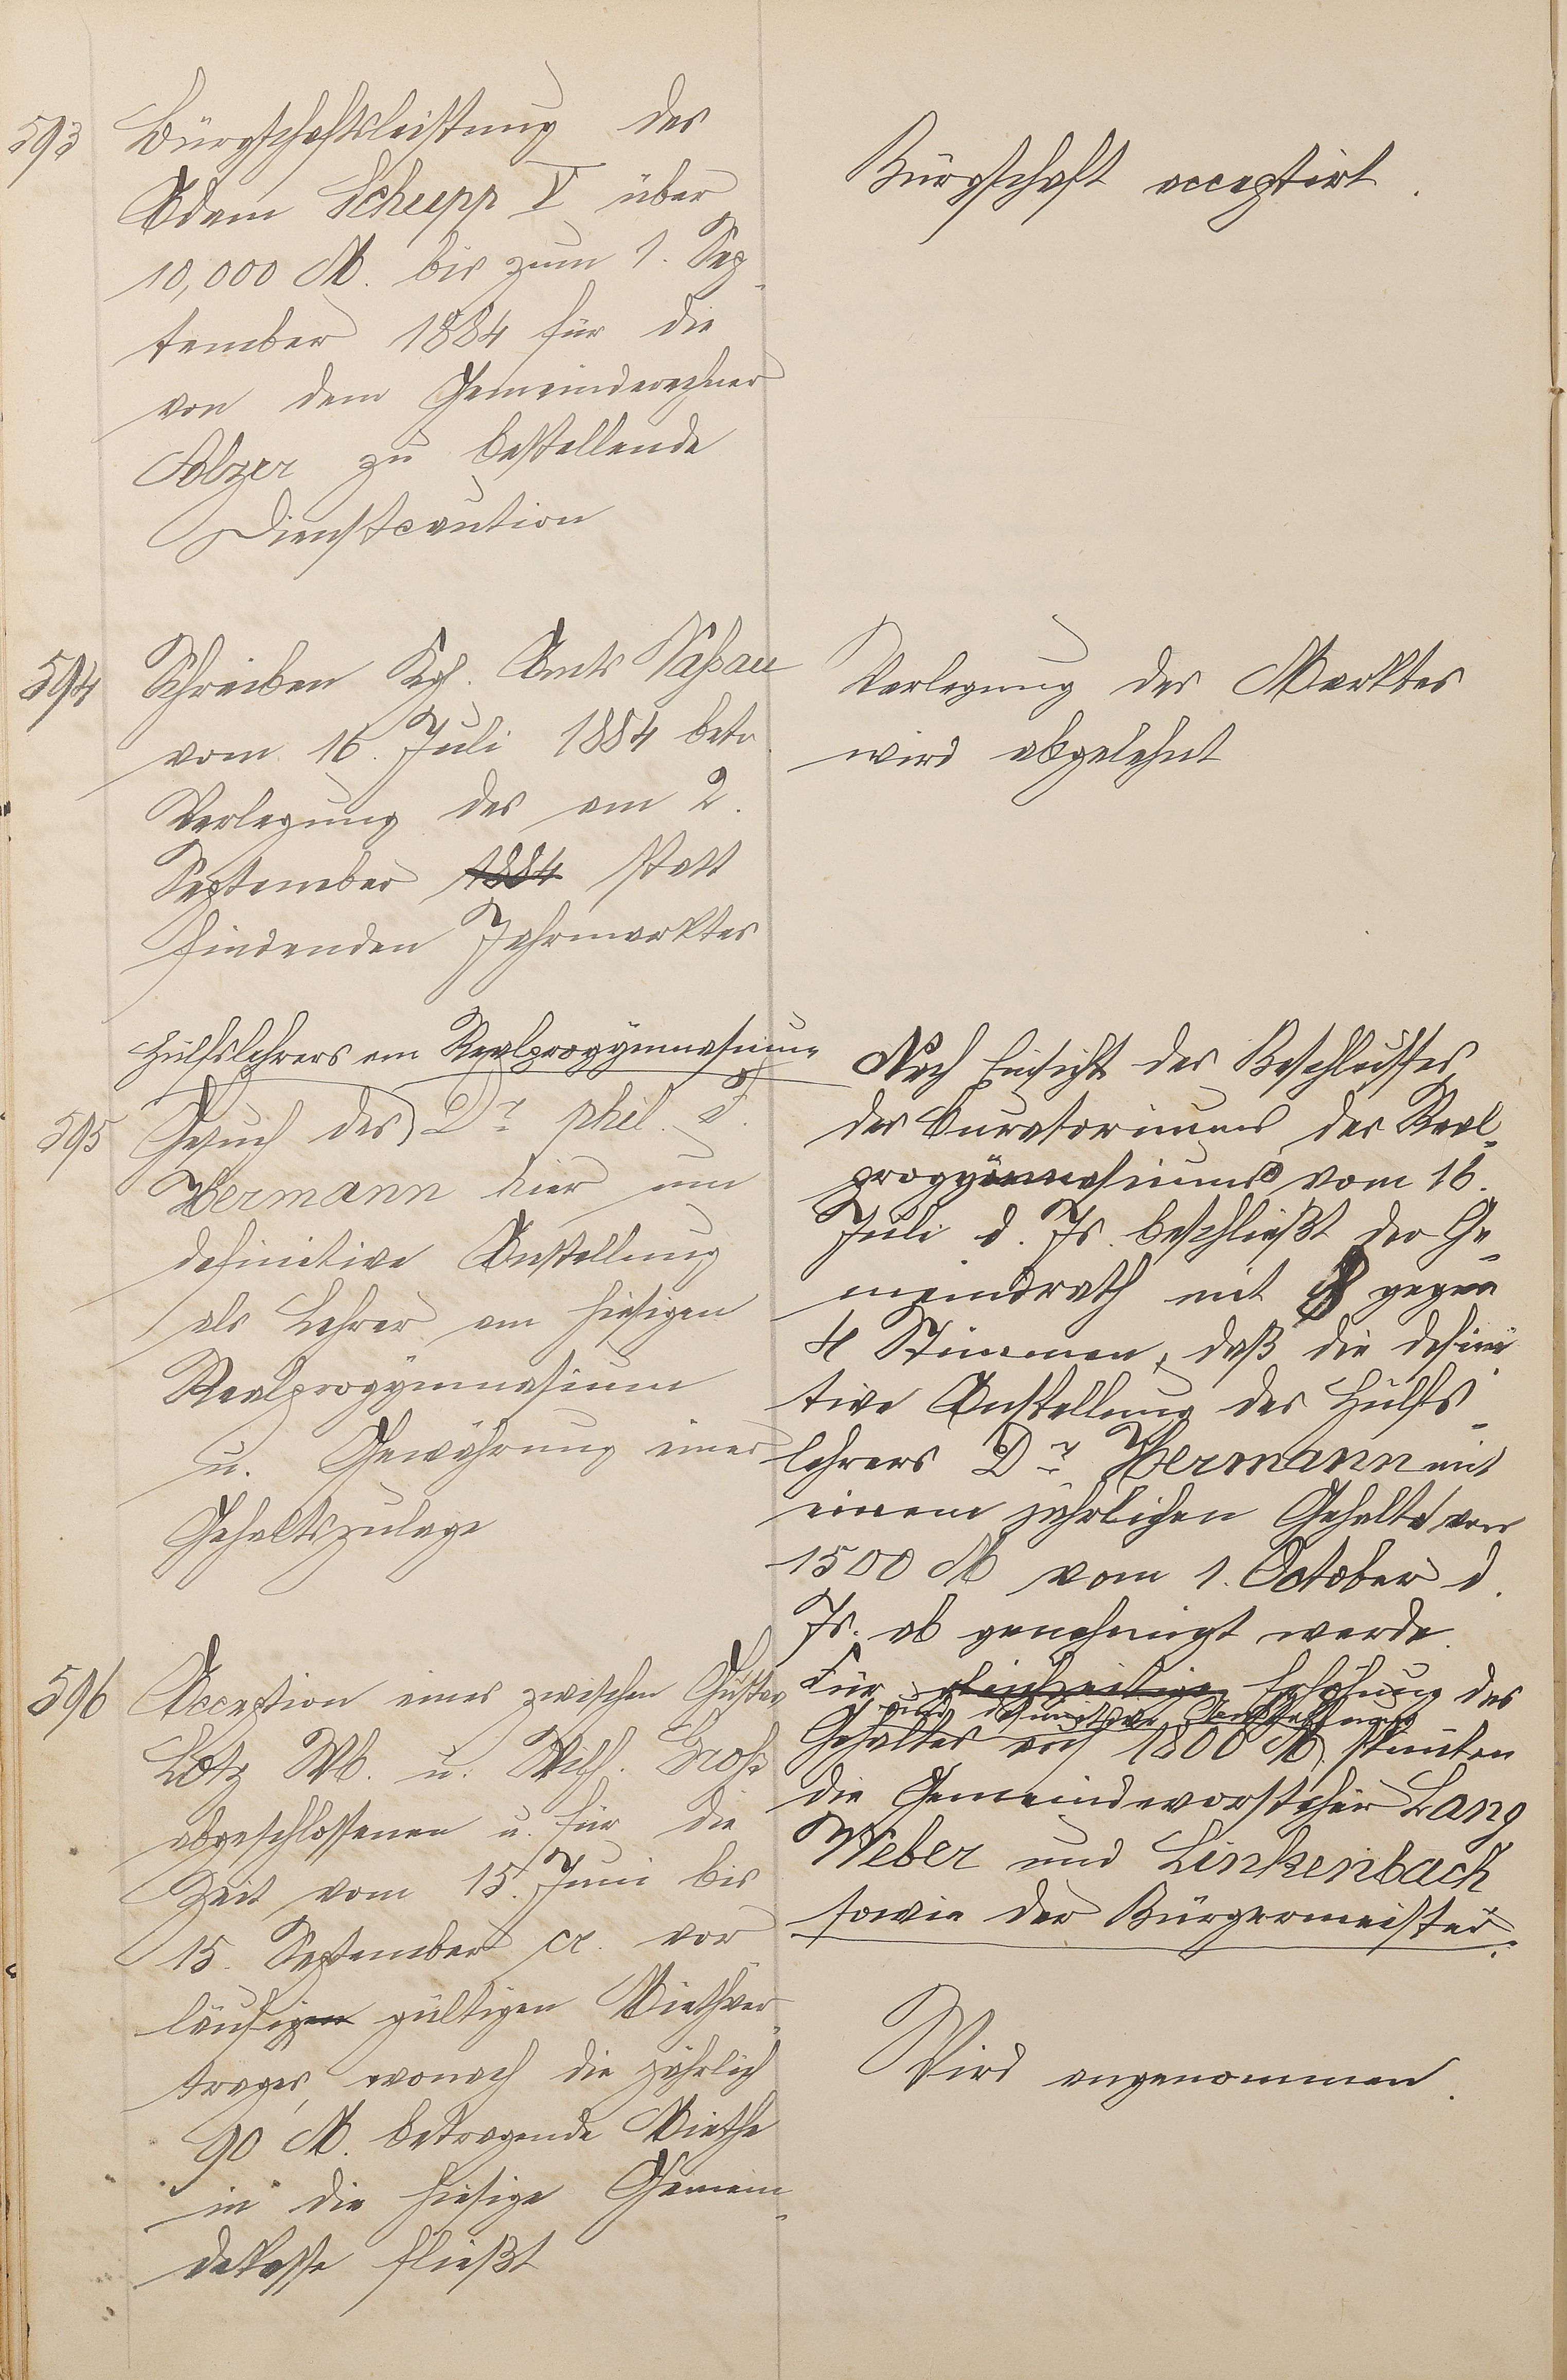 593
Bürgschaftsleistung des
Adam Schupp V über
10,000 M. bis zum 1. Sep-
tember 1884 für die
von dem Gemeinderechner
Polzer zu bestellende
Dienstcaution
Bürgschaft acceptirt.
594
Schreiben Kgl. Amts Naßau
vom 16. Juli 1884 betr.
Verlegung des am 2.
September 1884 statt
findenden Jahrmarktes
Verlegung des Marktes
wird abgelehnt
595
Hülfslehrers am Realprogymnasium
Gesuch des Dr phil. F.
Hermann hier um
definitive Anstellung
als Lehrer am hiesigen
Realprogymnasium
u. Gewährung einer
Gehaltszulage
Nach Einsicht des Beschlusses
des Curatoriums des Real-
progymnasiums vom 16.
Juli d. Js. beschließt der Ge-
meindrath mit 8 gegen
4 Stimmen, daß die defini
tive Anstellung des Hülfs-
lehrers Dr Hermann mit
einem jährlichen Gehalte von
1500 M vom 1. October d.
Js. ab genehmigt werde.
Für gleichzeitige Erhöhung des
und definitive Anstellung
Gehaltes auf 1800 M. stimten
die Gemeindevorsteher Lang
Weber und Linkenbach
sowie der Bürgermeister.
596
Acception eines zwischen Gustav
Lotz Wb. u. Wilh. Groß
abgeschlossenen u. für die
Zeit vom 15. Juni bis
15. September cr. vor
läufigen gültigen Miethver-
trages, wonach die jährlich
90 M. betragende Miethe
in die hiesige Gemein-
dekasse fließt
Wird angenommen.